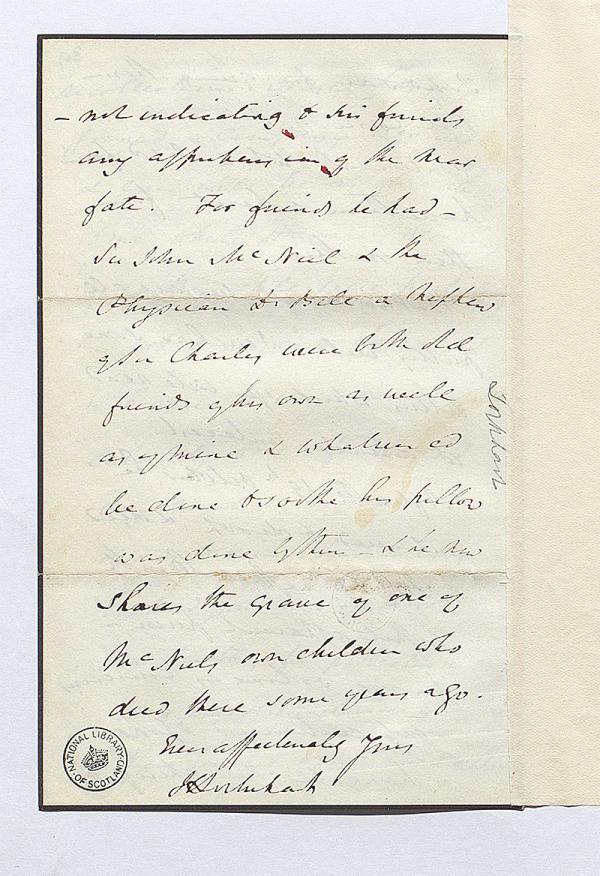 - not indicating to his friends
any apprehension of the near
fate. For friends he had -
Sir John McNeil & the
Physician Dr Bell a Nephew
of Sir Charles were both old
friends of his own as well
as of mine & whatever cd
be done to soothe his pillow
was done by them - & he now
shares the grave of one of
McNiels own children who
died there some years ago.
Ever affectionately Yours
JGLockhart
Lockhart
NATIONAL LIBRARY
OF SCOTLAND